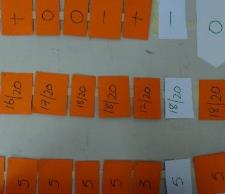 + 0 0 - + - 0
16/20 17/20 18/20 18/20 12/20 18/20 18/20
5 5 5 5 5 5 5